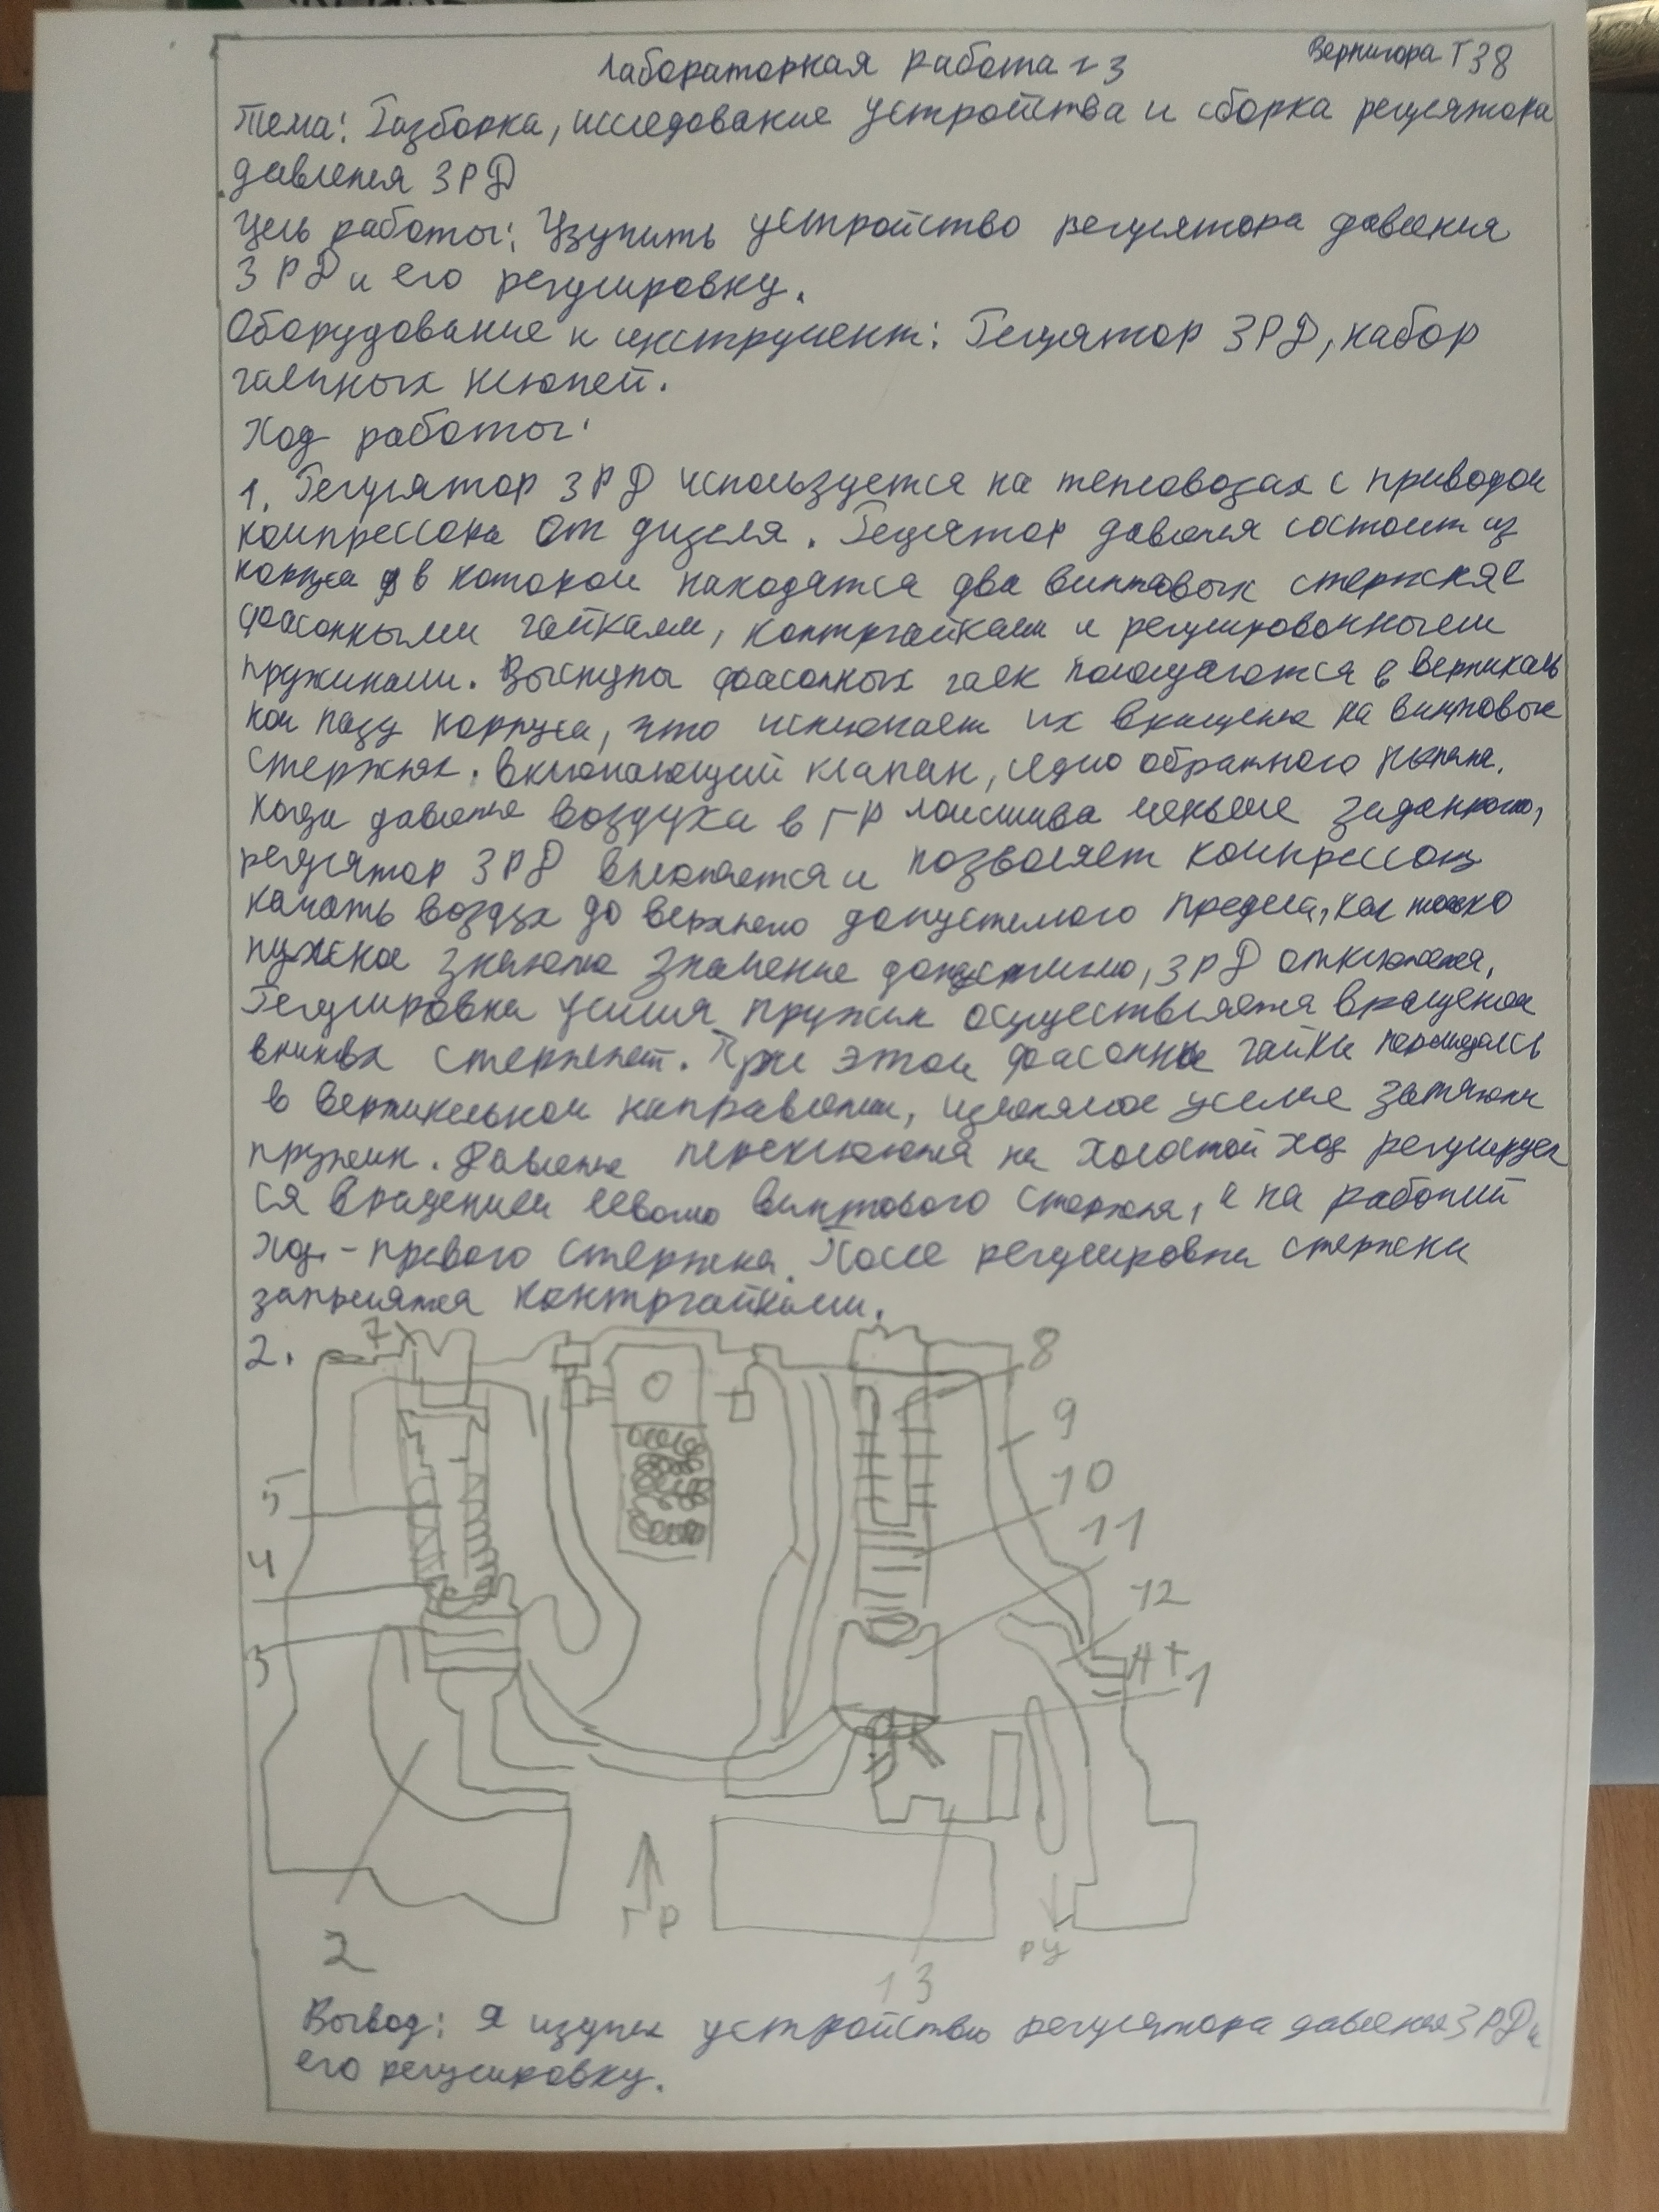 Лабораторная работа №3
Вернигора Т38
Тема: Разборка, исследование устройства и сборка регулятора
давления 3РД
Цель работы: Изучить устройство регулятора давления
3РД и его регулировку.
Оборудование и инструмент: Регулятор 3РД, набор
гаечных ключей.
Ход работы:
1. Регулятор 3РД используется на тепловозах с приводом
компрессора от дизеля. Регулятор давления состоит из
корпуса в котором находятся два винтовых стержня с
фасонными гайками, контргайками и регулировочными
пружинами. Выступы фасонных гаек помещаются в вертикаль
ном пазу корпуса, что исключает их вращение на винтовых
стержнях. Включающий клапан, седло обратного клапана.
Когда давление воздуха в ГР локомотива меньше заданного,
регулятор 3РД включается и позволяет компрессору
качать воздух до верхнего допустимого предела, как только
нужное значение достигнуто, 3РД отключается.
Регулировка усилия пружин осуществляется вращением
винтовых стержней. При этом фасонные гайки перемещаясь
в вертикальном направлении, изменяют усилие затяжки
пружин. Давление переключения на холостой ход регулирует
ся вращением левого винтового стержня, а на рабочий
ход - правого стержня. После регулировки стержни
закрепляются контргайками.
2.
7
8
9
5
10
11
4
12
3
АТ
1
ГР
РУ
2
13
Вывод: Я изучил устройство регулятора давления 3РД и
его регулировку.